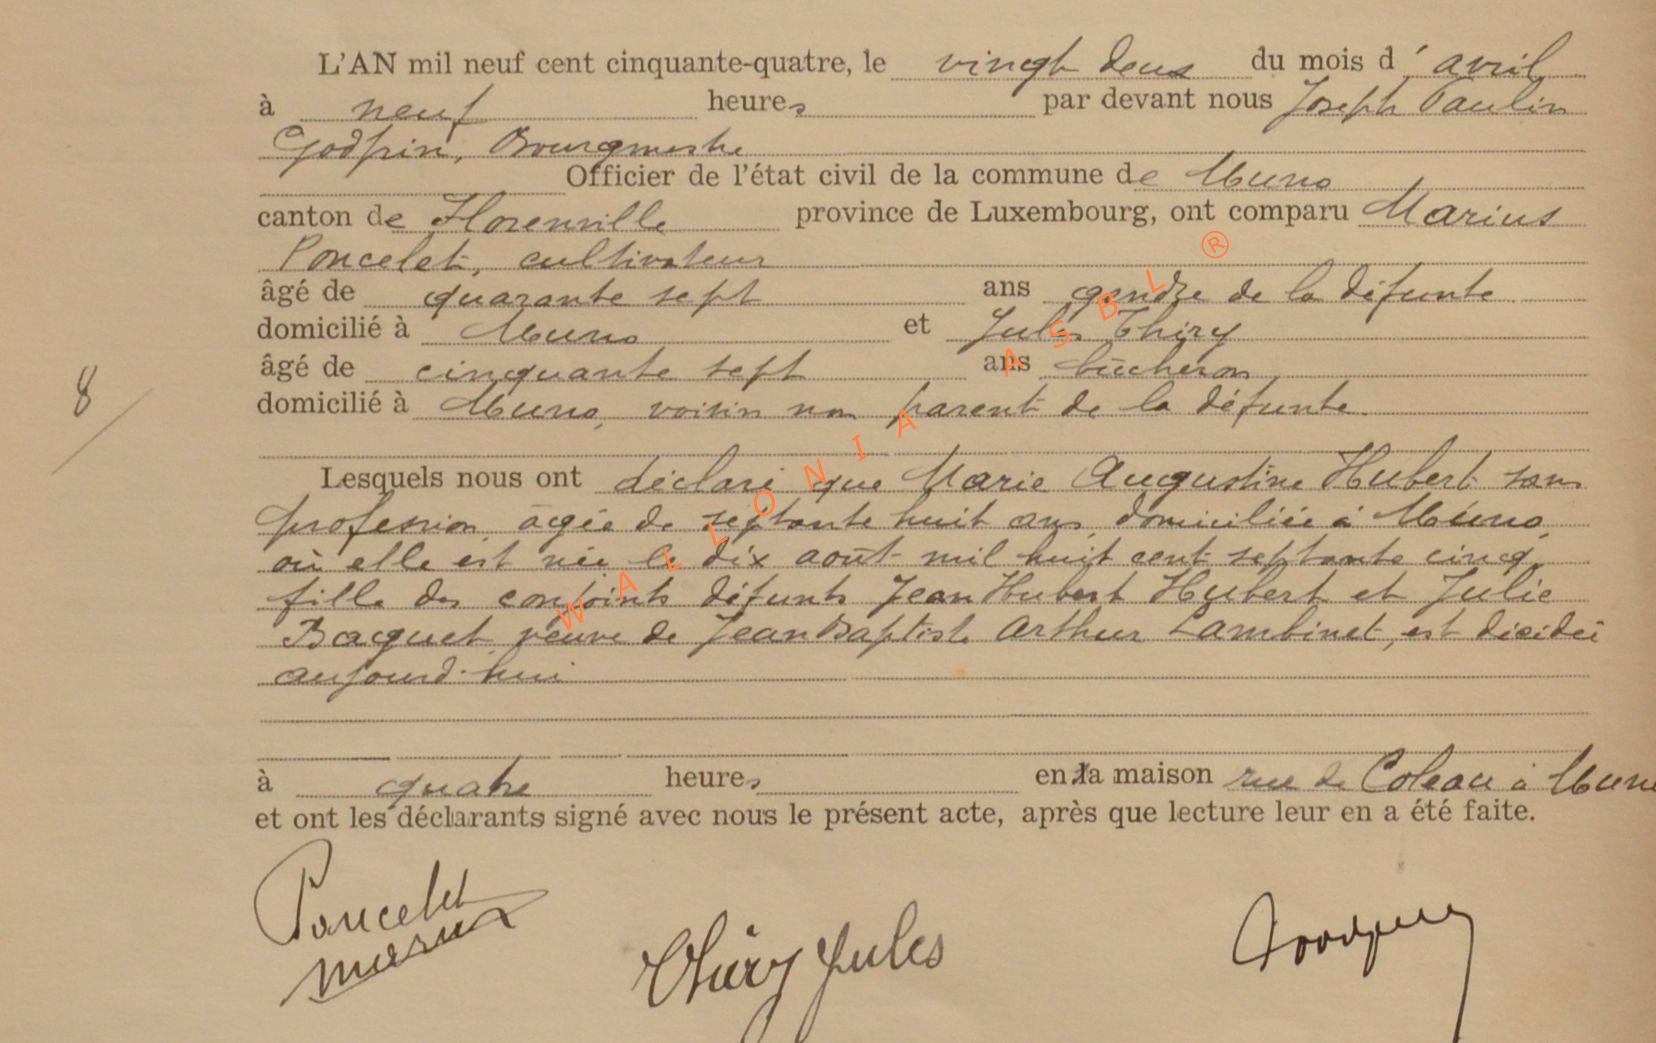 L'AN mil neuf cent cinquante-quatre, le vingt deux du mois d'avril
à neuf heures par devant nous Joseph Paulin
Godfrin, Bourgmestre
Officier de l'état civil de la commune de Muno
canton de Florenville province de Luxembourg, ont comparu Marius
Poncelet, cultivateur
âgé de quarante sept ans gendre de la défunte
domicilié à Muno et Jules Thiry
âgé de cinquante sept ans bûcheron
domicilié à Muno, voisin non parent de la défunte
8
Lesquels nous ont déclaré que Marie Augustine Hubert sans
profession, âgée de septante huit ans, domiciliée à Muno,
où elle est née le dix août mil huit cent septante cinq,
fille des conjoints défunts Jean Hubert Hubert et Julie
Bacquet, veuve de Jean Baptiste Arthur Lambinet, est décédée
aujourd'hui
à quatre heures en la maison rue de Coleau à Muno
et ont les déclarants signé avec nous le présent acte, après que lecture leur en a été faite.
Poncelet
Marius
Thiry Jules
WALLONIA ASBL ®